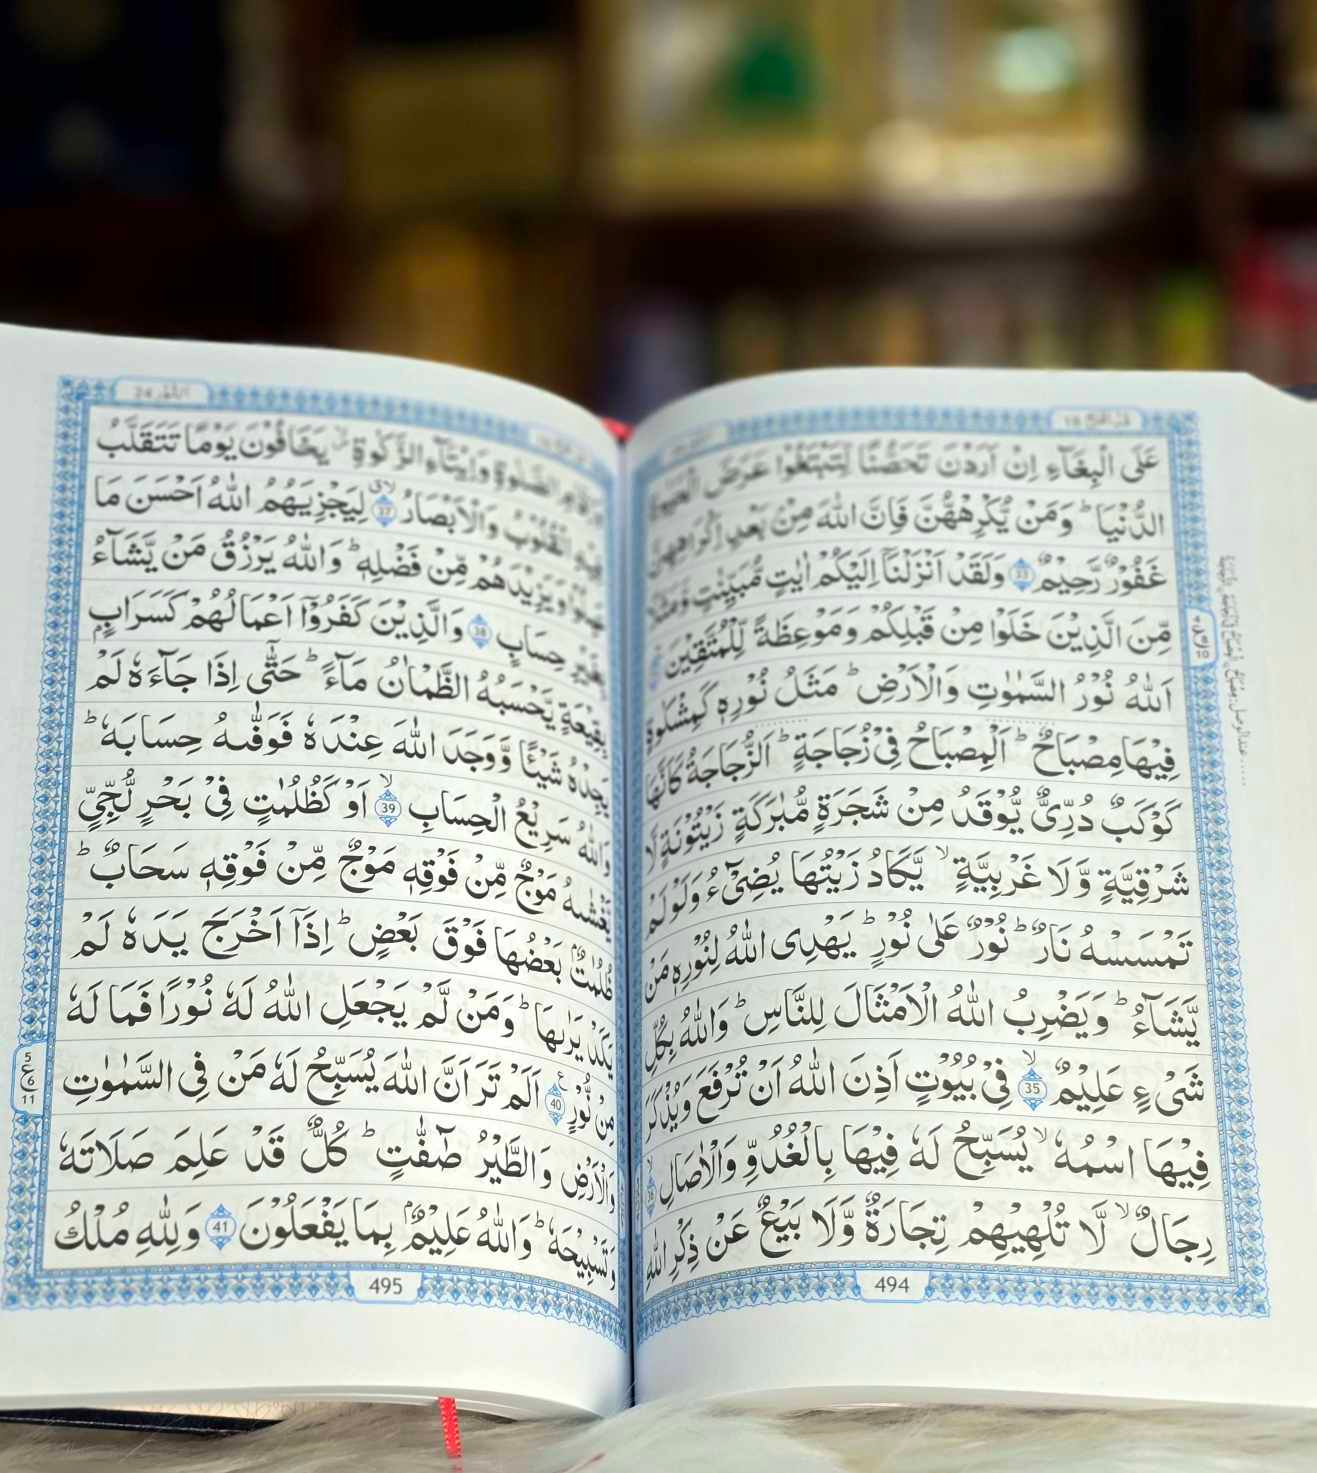 قد افلح 18
عَلَى الْبِغَآءِ اِنْ اَرَدْنَ تَحَصُّنًا لِّتَبْتَغُوْا عَرَضَ الْحَيٰوةِ
الدُّنْيَا ؕ وَمَنْ يُّكْرِهْهُّنَّ فَاِنَّ اللّٰهَ مِنْۢ بَعْدِ اِكْرَاهِهِنَّ
غَفُوْرٌ رَّحِيْمٌ 33 وَلَقَدْ اَنْزَلْنَاۤ اِلَيْكُمْ اٰيٰتٍ مُّبَيِّنٰتٍ وَّمَثَلًا
مِّنَ الَّذِيْنَ خَلَوْا مِنْ قَبْلِكُمْ وَمَوْعِظَةً لِّلْمُتَّقِيْنَ
اَللّٰهُ نُوْرُ السَّمٰوٰتِ وَالْاَرْضِ ؕ مَثَلُ نُوْرِهٖ كَمِشْكٰوةٍ
فِيْهَا مِصْبَاحٌ ؕ اَلْمِصْبَاحُ فِىْ زُجَاجَةٍ ؕ اَلزُّجَاجَةُ كَاَنَّهَا
كَوْكَبٌ دُرِّىٌّ يُّوْقَدُ مِنْ شَجَرَةٍ مُّبٰرَكَةٍ زَيْتُوْنَةٍ لَّا
شَرْقِيَّةٍ وَّلَا غَرْبِيَّةٍ ۙ يَّكَادُ زَيْتُهَا يُضِىْٓءُ وَلَوْ لَمْ
تَمْسَسْهُ نَارٌ ؕ نُوْرٌ عَلٰى نُوْرٍ ؕ يَهْدِى اللّٰهُ لِنُوْرِهٖ مَنْ
يَّشَآءُ ؕ وَيَضْرِبُ اللّٰهُ الْاَمْثَالَ لِلنَّاسِ ؕ وَاللّٰهُ بِكُلِّ
شَىْءٍ عَلِيْمٌ ۙ 35 فِىْ بُيُوْتٍ اَذِنَ اللّٰهُ اَنْ تُرْفَعَ وَيُذْكَرَ
فِيْهَا اسْمُهٗ ۙ يُسَبِّحُ لَهٗ فِيْهَا بِالْغُدُوِّ وَالْاٰصَالِ ۙ 36
رِجَالٌ ۙ لَّا تُلْهِيْهِمْ تِجَارَةٌ وَّلَا بَيْعٌ عَنْ ذِكْرِ اللّٰهِ
494
النور 24
وَاِقَامِ الصَّلٰوةِ وَاِيْتَآءِ الزَّكٰوةِ ۙ يَخَافُوْنَ يَوْمًا تَتَقَلَّبُ
فِيْهِ الْقُلُوْبُ وَالْاَبْصَارُ ۙ 37 لِيَجْزِيَهُمُ اللّٰهُ اَحْسَنَ مَا
عَمِلُوْا وَيَزِيْدَهُمْ مِّنْ فَضْلِهٖ ؕ وَاللّٰهُ يَرْزُقُ مَنْ يَّشَآءُ
بِغَيْرِ حِسَابٍ 38 وَالَّذِيْنَ كَفَرُوْۤا اَعْمَالُهُمْ كَسَرَابٍۭ
بِقِيْعَةٍ يَّحْسَبُهُ الظَّمْاٰنُ مَآءً ؕ حَتّٰٓى اِذَا جَآءَهٗ لَمْ
يَجِدْهُ شَيْـًٔا وَّوَجَدَ اللّٰهَ عِنْدَهٗ فَوَفّٰىهُ حِسَابَهٗ ؕ
وَاللّٰهُ سَرِيْعُ الْحِسَابِ ۙ 39 اَوْ كَظُلُمٰتٍ فِىْ بَحْرٍ لُّجِّىٍّ
يَّغْشٰىهُ مَوْجٌ مِّنْ فَوْقِهٖ مَوْجٌ مِّنْ فَوْقِهٖ سَحَابٌ ؕ
ظُلُمٰتٌۢ بَعْضُهَا فَوْقَ بَعْضٍ ؕ اِذَاۤ اَخْرَجَ يَدَهٗ لَمْ
يَكَدْ يَرٰىهَا ؕ وَمَنْ لَّمْ يَجْعَلِ اللّٰهُ لَهٗ نُوْرًا فَمَا لَهٗ
مِنْ نُّوْرٍ 40 اَلَمْ تَرَ اَنَّ اللّٰهَ يُسَبِّحُ لَهٗ مَنْ فِى السَّمٰوٰتِ
وَالْاَرْضِ وَالطَّيْرُ صٰٓفّٰتٍ ؕ كُلٌّ قَدْ عَلِمَ صَلَاتَهٗ
وَتَسْبِيْحَهٗ ؕ وَاللّٰهُ عَلِيْمٌۢ بِمَا يَفْعَلُوْنَ 41 وَلِلّٰهِ مُلْكُ
5
ع
6
11
495